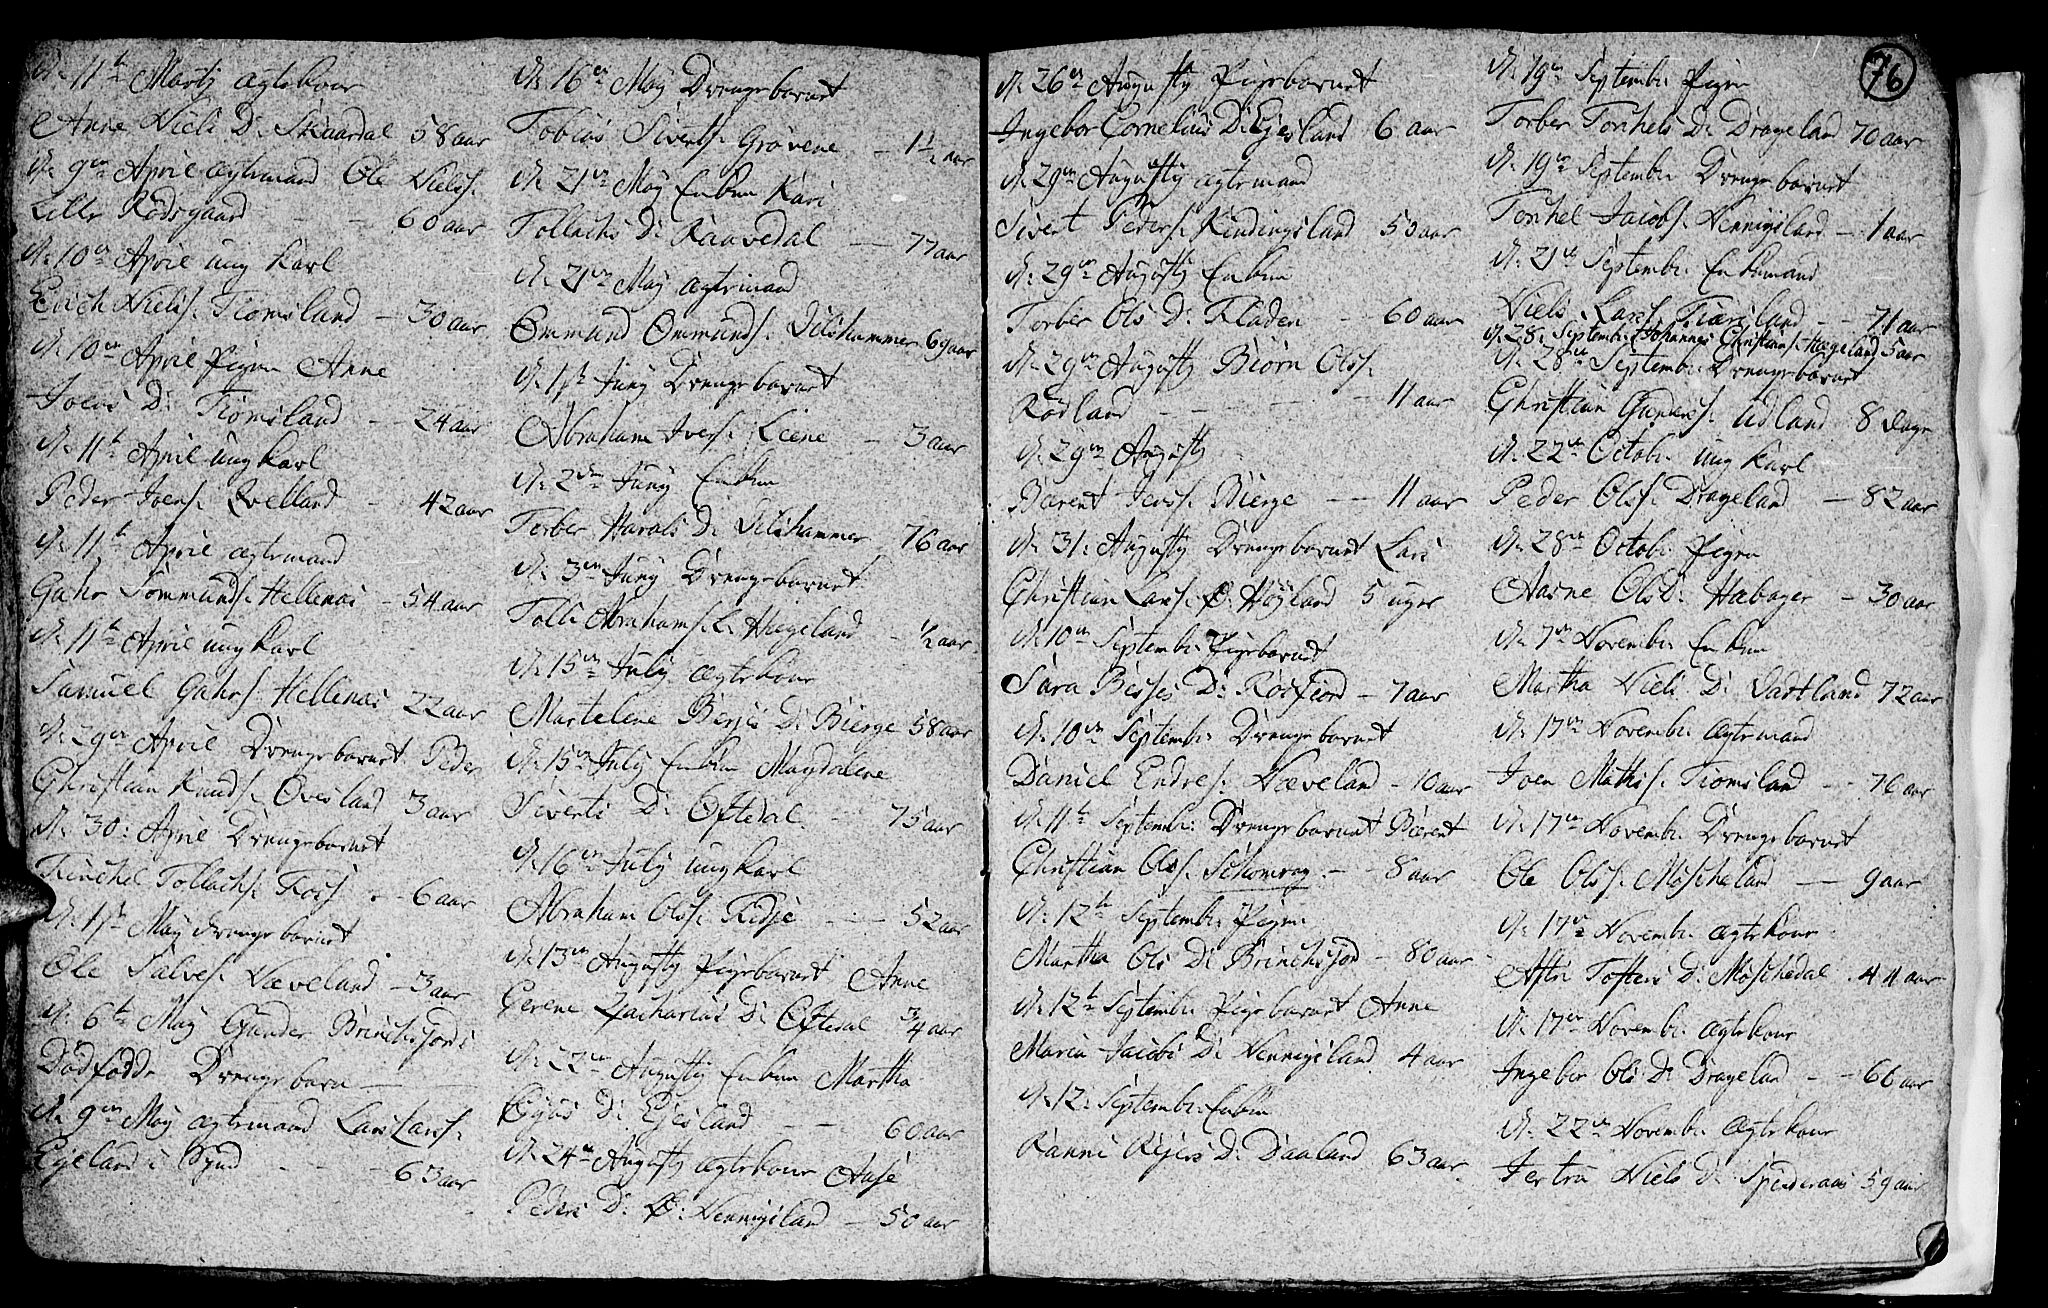 d. 11te Martj ægtekone
Anne Niels D: Skaardal 58 aar
d. 9en April ægtemand Ole Niels.
Lille Rödsgaard - - 60 aar
d. 10en April ung karl
Erich Niels. Tiomsland - 30 aar
d. 10en April Pigen Anne
Joens D: Tiomsland - - 24 aar
d. 11te April ung karl
Peder Joens. Qvelland - 42 aar
d. 11te April ægtemand
Gahr Tommunds. Hellenæs - 54 aar
d. 11te April ung karl
Samuel Gahrs. Hellenæs 22 aar
d. 29en April Drengebarnet Peder
Christian Knuds. Øvesland 3 aar
d. 30: April Drengebarnet
Tarichel Tollachs. Foss - 6 aar
d. 1ste May drengebarnet
Ole Salves. Næveland - 3 aar
d. 6te May Gunder Brinchsfjords
Dödfödde Drengebarn -
d. 9en May ægtemand Lars Lars.
Egeland i Synd - - 63 aar
d. 16en May Drengebarnet
Tobias Siverts. Grövene - 1½ aar
d. 21en May Enken Kari
Tollachs D: Raavedal - 77 aar
d. 21en May ægtemand
Ommund Ommunds. Seloshammer 69 aar
d. 1ste Juny Drengebarnet
Abraham Ivers. Leene - 3 aar
d. 2den Juny Enken
Torber Harals D: Seloshammer 76 aar
d. 3en Juny Drengebarnet
Tolli Abrahams. L. Hægeland - ½ aar
d. 15en July ægtekone
Martelene Berjes D: Bierge 58 aar
d. 15en July Enken Magdalene
Siverts D: Øftedal - 75 aar
d. 16en July ung karl
Abraham Ols. Kidje - - 52 aar
d. 13en Augusty Pigebarnet Anne
Gerene Zacharias D: Øftedal ¾ aar
d. 22en Augusty Enken Martha
Gjös D: Ejesland - - 60 aar
d. 24en Augusty ægtekone Aase
Peders D: Ø: Hennigsland - 50 aar
d. 26en Augusty Pigebarnet
Ingebor Cornelius D: Ejesland 6 aar
d. 29en Augusty ægtemand
Sivert Peders. Kindingsland 50 aar
d. 29en Augusty Enken
Torber Ols D: Kladen - - 60 aar
d. 29en Augusty Biörn Ols.
Rödland - - - - 11 aar
d. 29en Augusty
Bærent Jens. Bierge - - 11 aar
d. 31: Augusty Drengebarnet Lars
Christian Lars. Ø. Høyland 5 uger
d. 10en Septembr. Pigebarnet
Sara Besses D: Rosfiord - 7 aar
d. 10en Septembr. Drengebarnet
Daniel Endres. Næveland - 10 aar
d. 11te Septembr. Drengebarnet Bærent
Christian Ols. Schomrag. - 8 aar
d. 12te Septembr. Pigen
Martha Ols D: Brinchsjord - 80 aar
d. 12te Septembr. Pigebarnet Anne
Maria Jacobs D: Hennigsland 4 aar
d. 12: Septembr. Enken
Ranni Rejers D: Daaland 63 aar
76
d. 19en Septembr. Pigen
Torber Torkels D: Drageland 70 aar
d. 19en Septembr. Drengebarnet
Torkel Jacobs. Hennigsland - 1 aar
d. 21te Septembr. Enkemand
Niels Lars. Tiærsland - - 71 aar
d. 28: Septembr. Johannes Christians. Hægeland 5 aar
d. 28en Septembr. Drengebarnet
Christian Gunders. Udland 8 dage
d. 22en Octobr. ung karl
Peder Ols. Drageland - 82 aar
d. 28en Octobr. Pigen
Aasne Ols D: Habager - 30 aar
d. 7en Novembr. Enken
Martha Niels D: Vadtland 72 aar
d. 17en Novembr. ægtemand
Joen Mathis. Tiomsland - - 76 aar
d. 17en Novembr. Drengebarnet
Ole Ols. Moscheland - 9 aar
d. 17en Novembr. ægtekone
Astri Tostens D: Moschedal . 44 aar
d. 17en Novembr. ægtekone
Ingebor Ols D: Drageland - - 66 aar
d. 22en Novembr. ægtekone
Jertru Niels D: Speideraas 59 aar